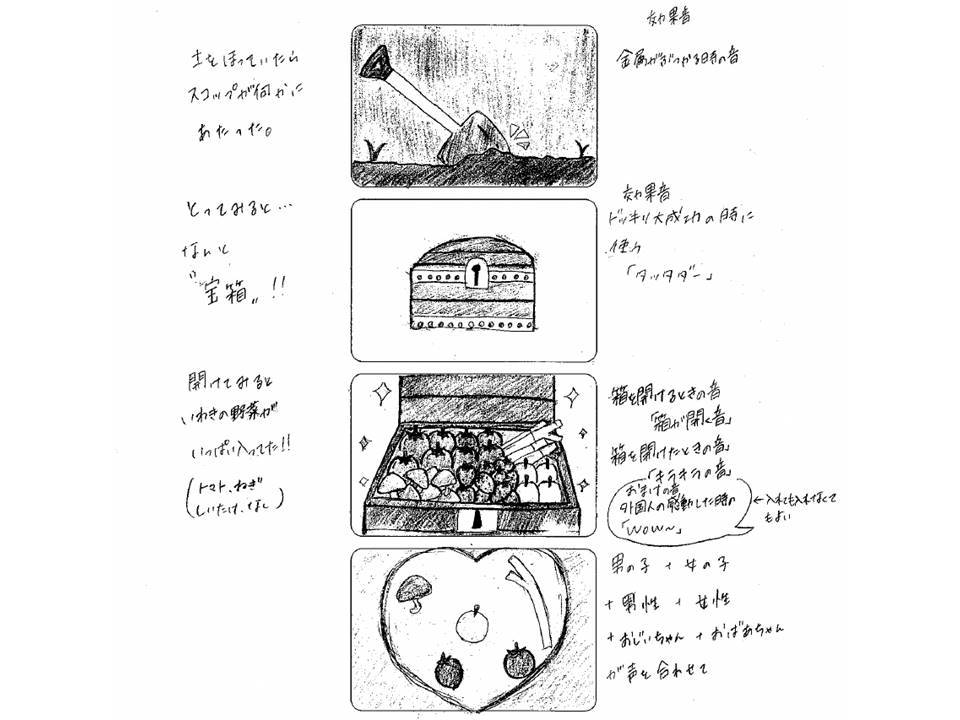 土をほっていたら
スコップが何かに
あたった。
効果音
金属がぶつかる時の音
とってみると…
なんと
"宝箱"!!
効果音
ドッキリ大成功の時に
使う
「タッタダー」
開けてみると
いわきの野菜が
いっぱい入ってた!!
(トマト、ねぎ
しいたけ、なし)
箱を開けるときの音
「箱が開く音」
箱を開けたときの音
「キラキラの音」
おまけの音
外国人の感動した時の
「WOW~」
←入れても入れなくて
もよい
男の子 + 女の子
+ 男性 + 女性
+ おじいちゃん + おばあちゃん
が声を合わせて